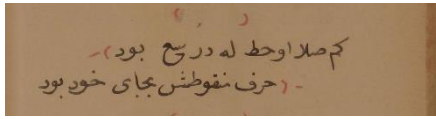 کم صلا او حط له در سع بود
حرف منقوطش بجای خود بود